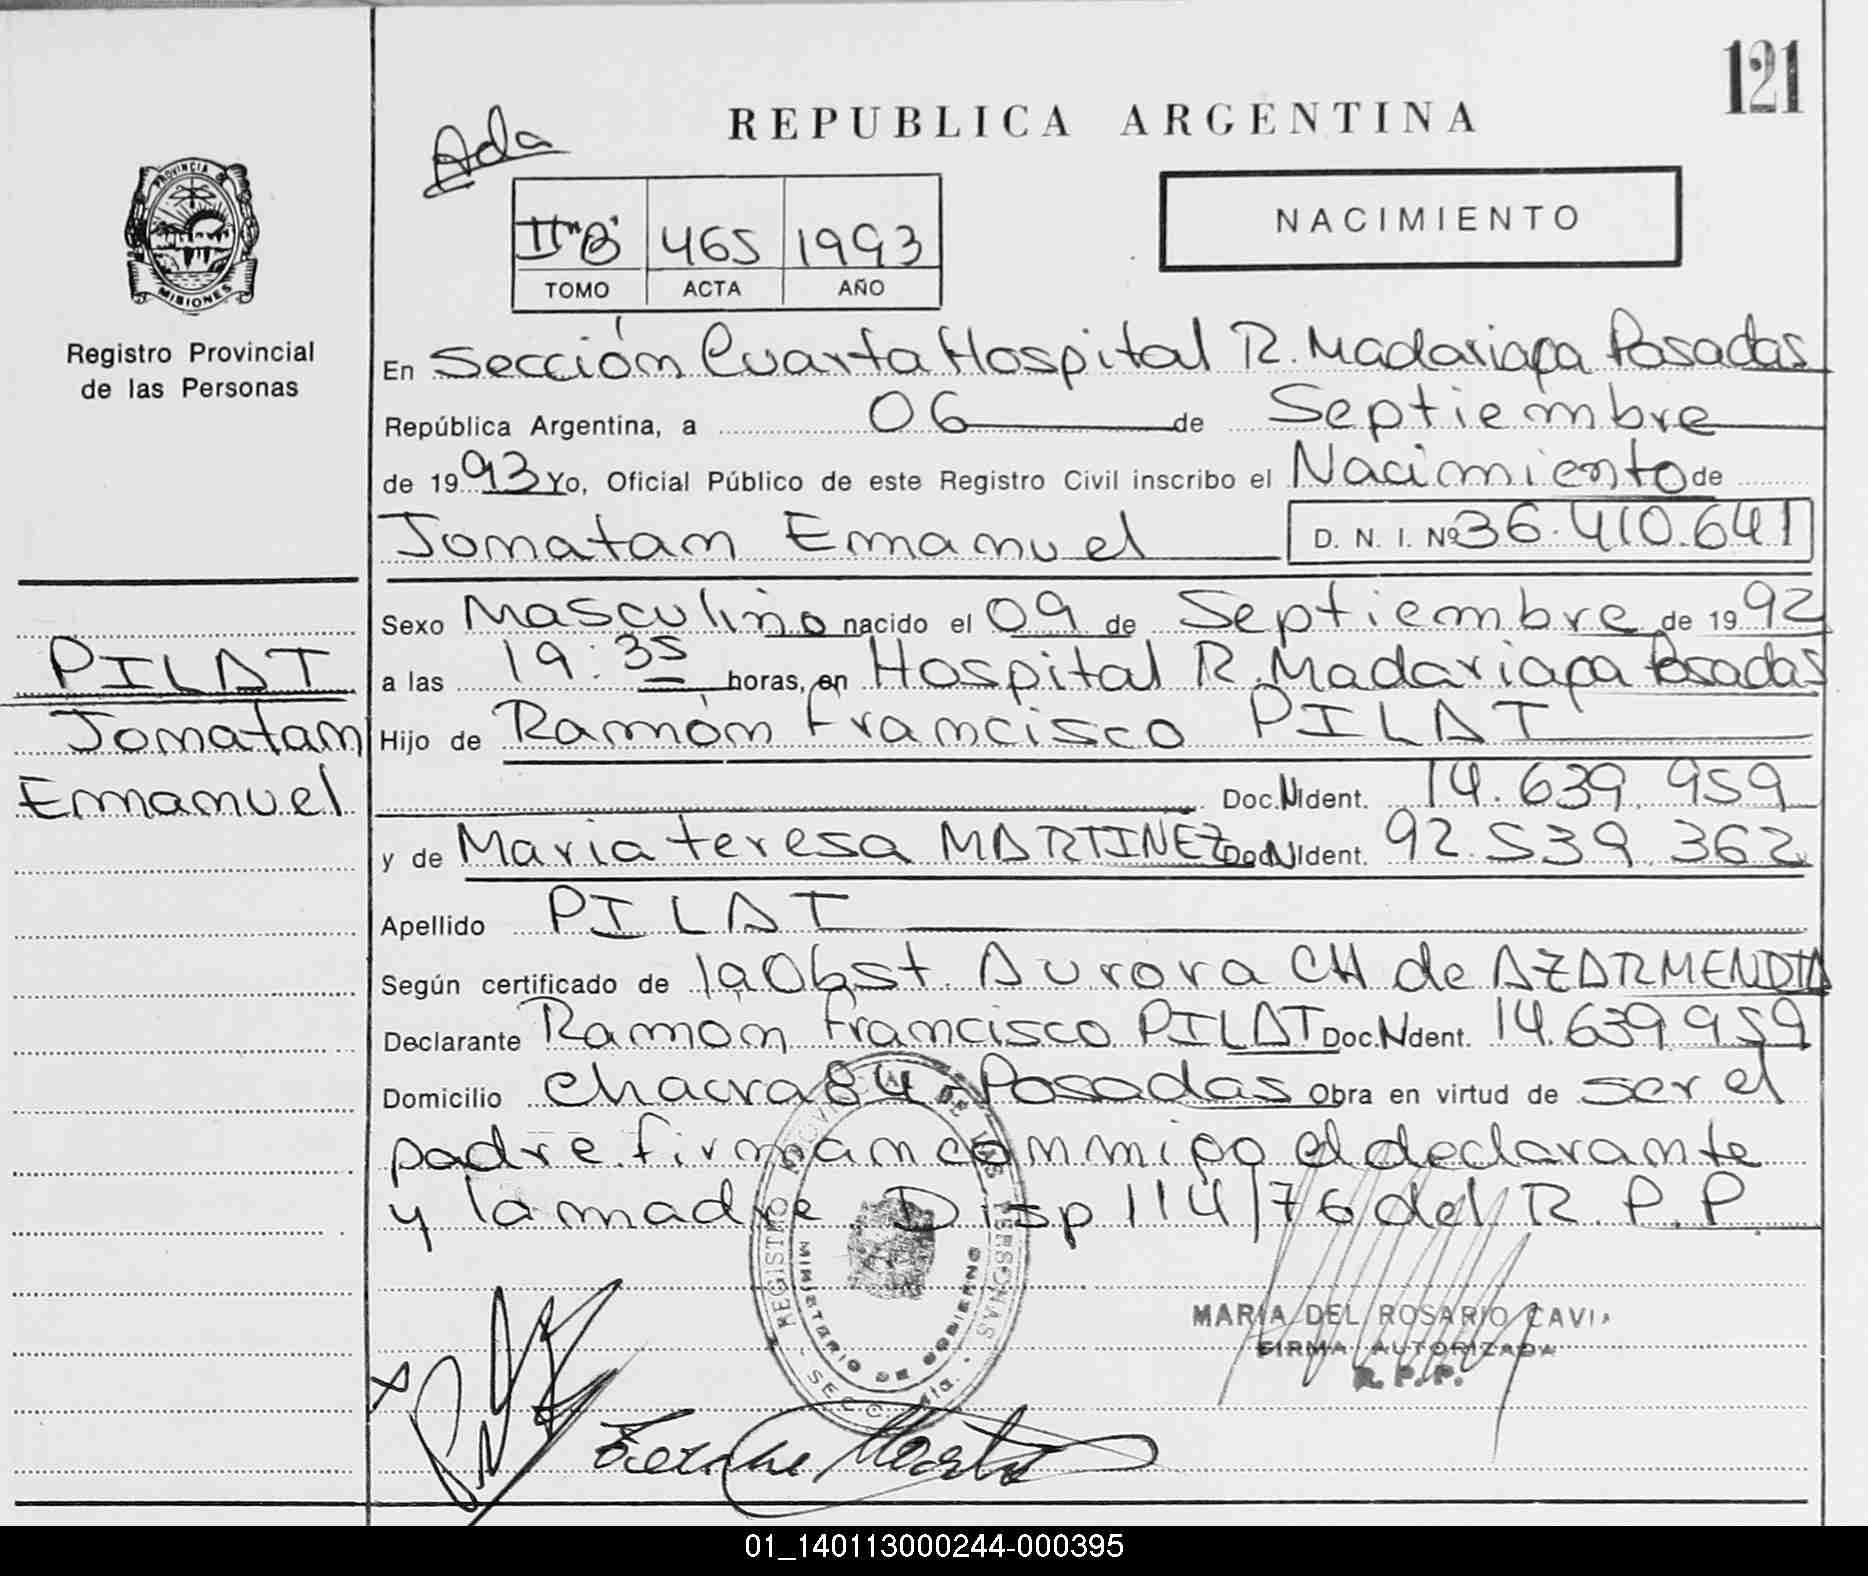 121
REPUBLICA ARGENTINA
Ada
NACIMIENTO
II "B" 465 1993
TOMO ACTA AÑO
PROVINCIA DE
MISIONES
Registro Provincial
de las Personas
En Sección Cuarta Hospital R. Madariaga Posadas
República Argentina, a 06 de Septiembre
de 1993 Yo, Oficial Público de este Registro Civil inscribo el Nacimiento de
Jonatan Emanuel D. N. I. Nº 36.410.641
Sexo Masculino nacido el 09 de Septiembre de 1992
a las 19:35 horas, en Hospital R. Madariaga Posadas
PILAT
Jonatan
Emanuel
Hijo de Ramón Francisco PILAT
Doc. N Ident. 14.639.959
y de Maria teresa MARTINEZ Doc N Ident. 92.539.362
Apellido PILAT
Según certificado de la Obst. Aurora CH de AZARMENDIA
Declarante Ramon Francisco PILAT Doc. N dent. 14.639.959
Domicilio chacra 84 - Posadas Obra en virtud de ser el
padre. firman conmigo el declarante
y la madre Disp 114/76 del R. P. P.
REGISTRO PROVINCIAL DE LAS PERSONAS
MINISTERIO DE GOBIERNO
SECC. 4ta.
MARIA DEL ROSARIO CAVIA
FIRMA AUTORIZADA
R. P. P.
01_140113000244-000395